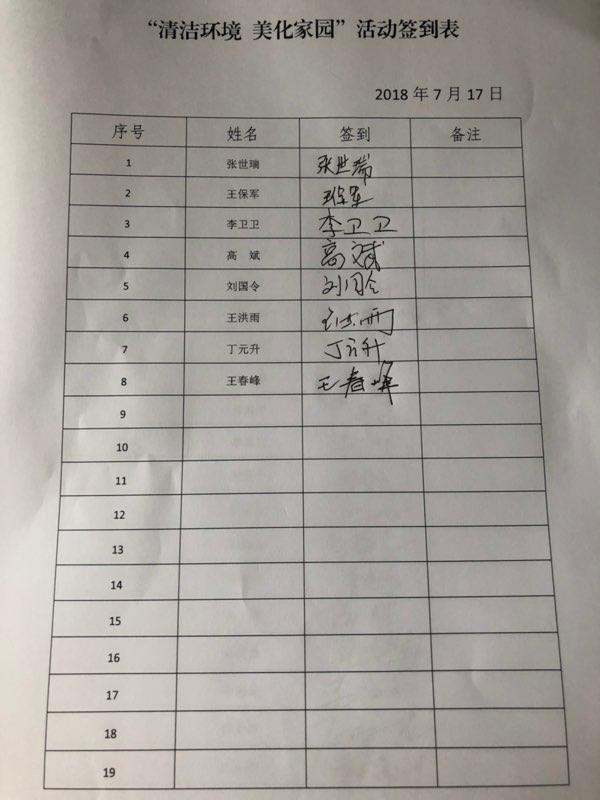 “清洁环境 美化家园”活动签到表
2018 年 7 月 17 日
序号 姓名 签到 备注
1 张世瑞 张世瑞
2 王保军 王保军
3 李卫卫 李卫卫
4 高 斌 高斌
5 刘国令 刘国令
6 王洪雨 王洪雨
7 丁元升 丁元升
8 王春峰 王春峰
9
10
11
12
13
14
15
16
17
18
19